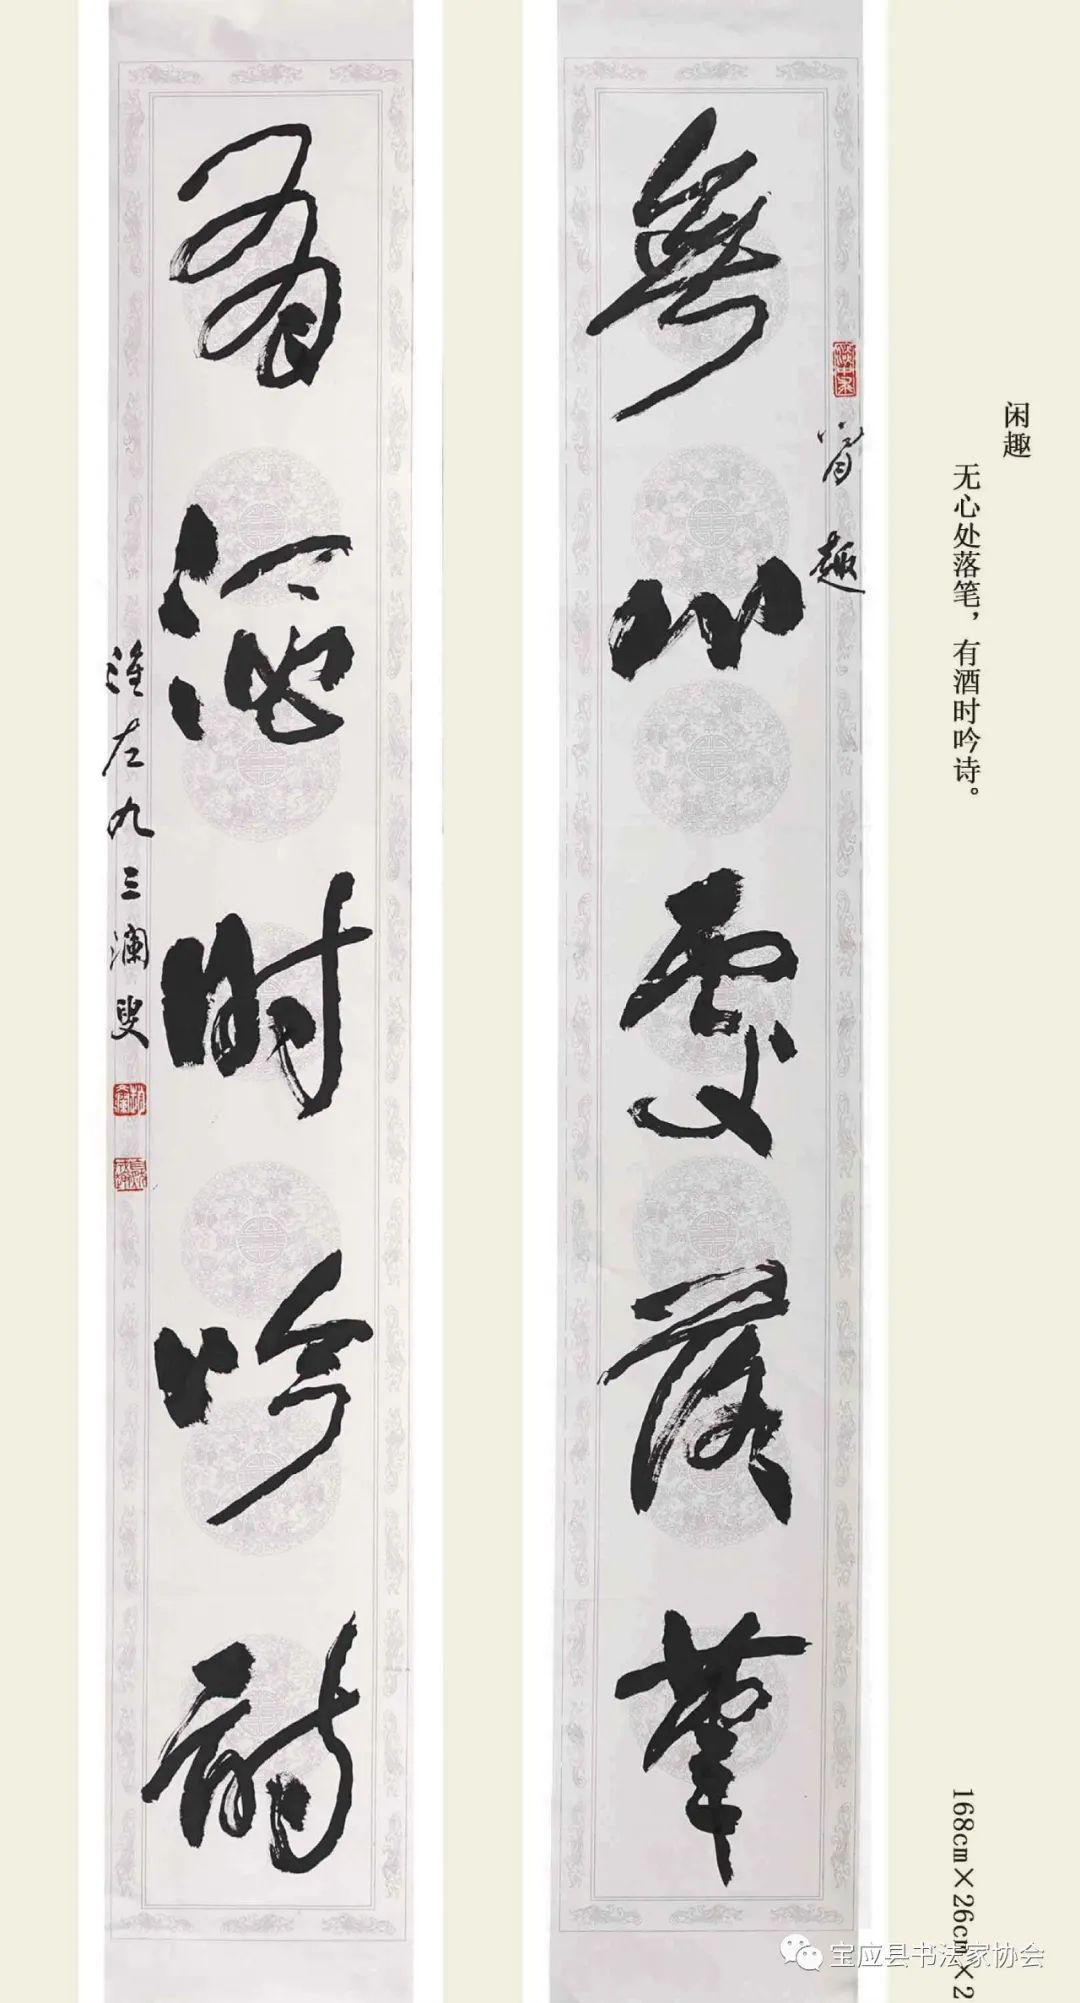 闲趣
无心处落笔，有酒时吟诗。
168cm×26cm×2
闲趣
無心處落筆
有酒時吟詩
淮左九三澜叟
宝应县书法家协会